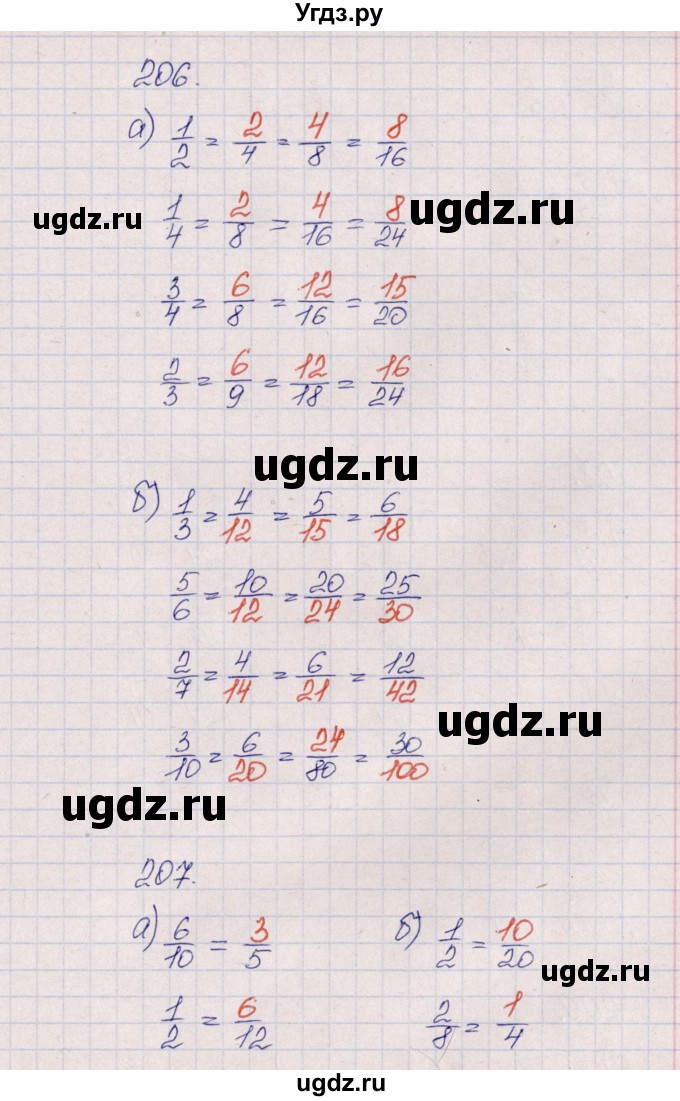 Угдз.ру
206.
а) 1/2 = 2/4 = 4/8 = 8/16
ugdz.ru
1/4 = 2/8 = 4/16 = 8/24
ugdz.ru
3/4 = 6/8 = 12/16 = 15/20
2/3 = 6/9 = 12/18 = 16/24
ugdz.ru
б) 1/3 = 4/12 = 5/15 = 6/18
5/6 = 10/12 = 20/24 = 25/30
2/7 = 4/14 = 6/21 = 12/42
ugdz.ru
3/10 = 6/20 = 24/80 = 30/100
ugdz.ru
207.
а) 6/10 = 3/5
б) 1/2 = 10/20
ugdz.ru
1/2 = 6/12
2/8 = 1/4
ugdz.ru